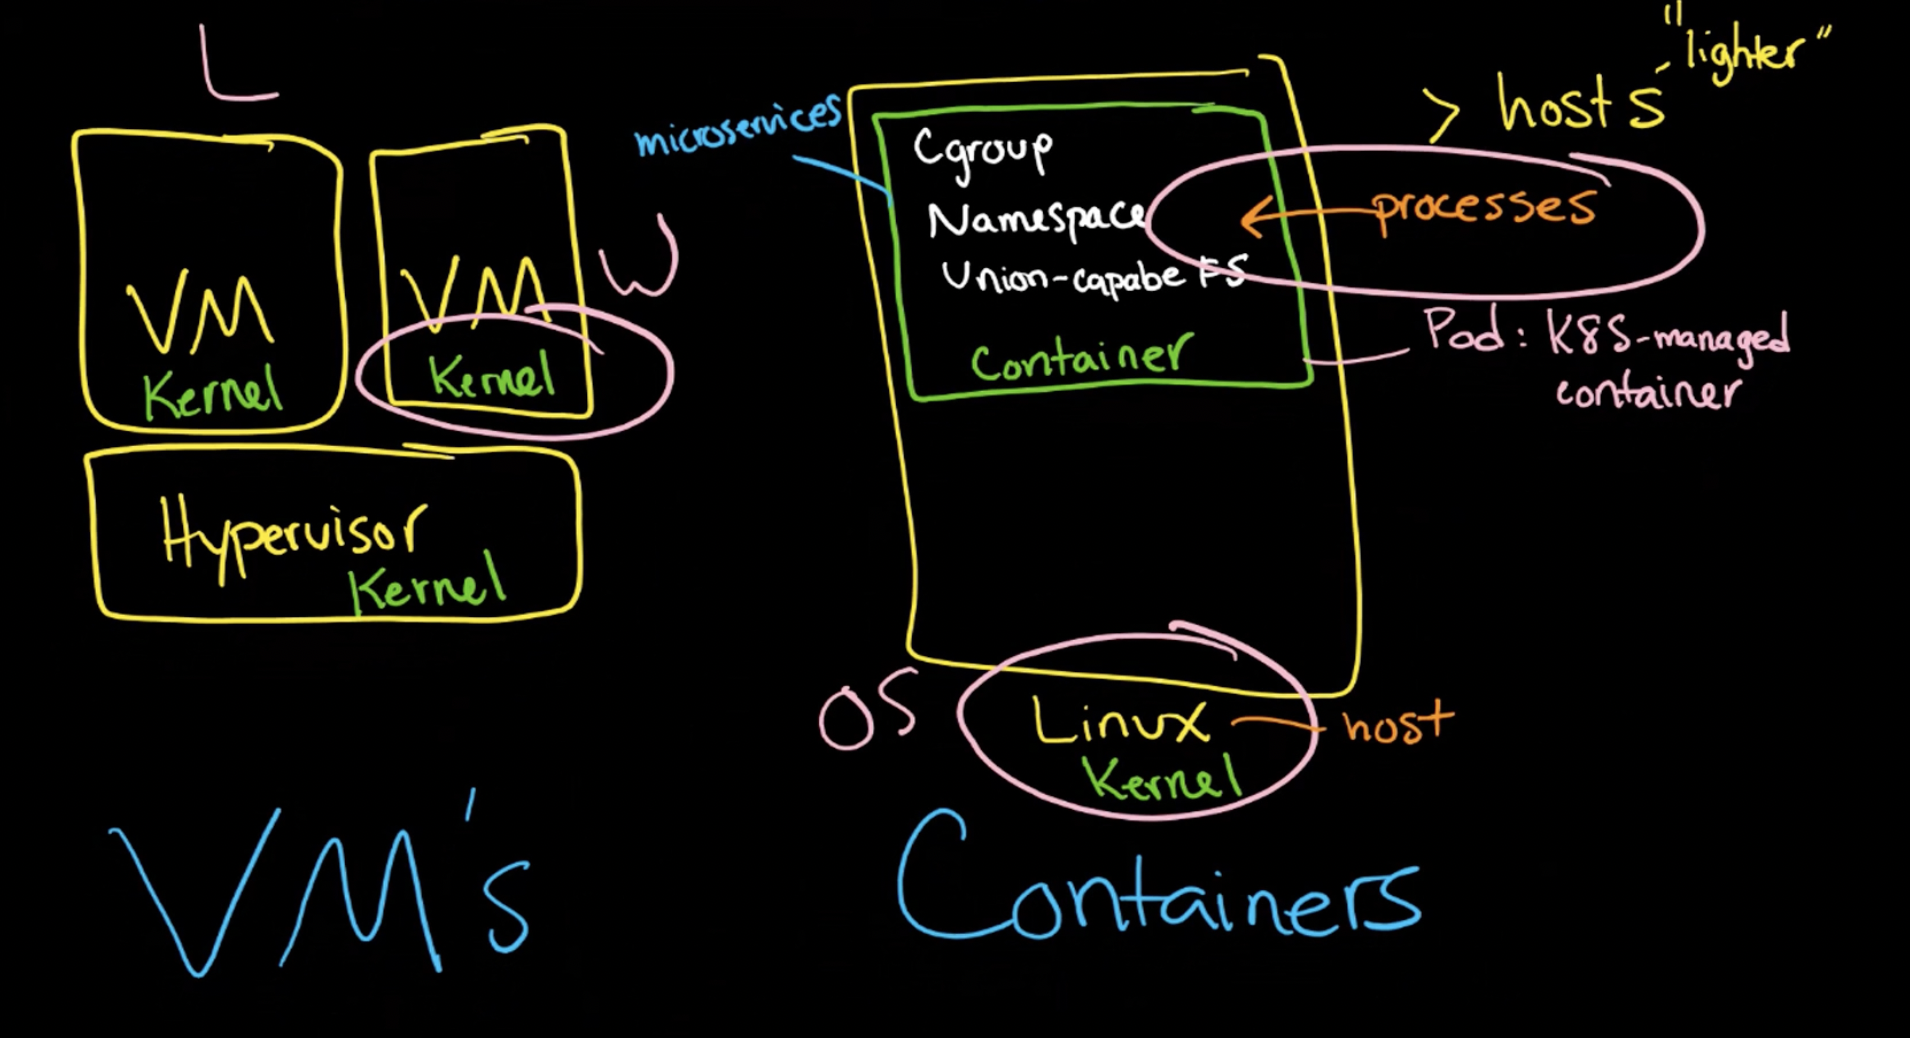 L
VM
Kernel
VM
Kernel
W
Hypervisor
Kernel
VM's
microservices
Cgroup
Namespace
Union-capabe FS
Container
"lighter"
> hosts
processes
Pod: K8S-managed
container
OS
Linux
Kernel
host
Containers